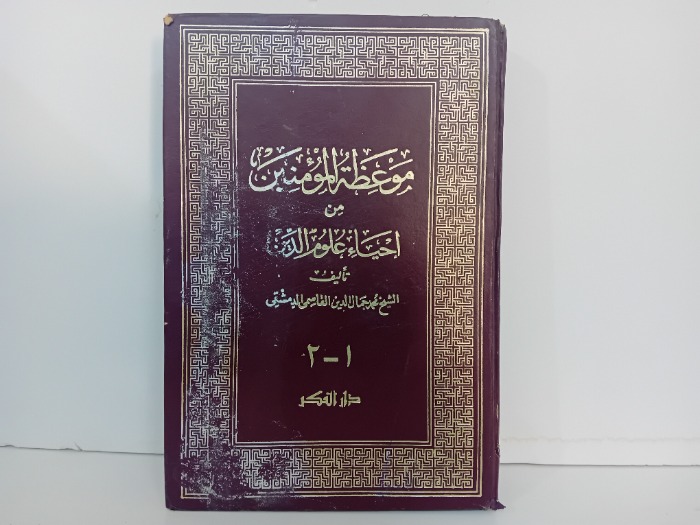 موعظة المؤمنين
من
احياء علوم الدين
تأليف
الشيخ محمد جمال الدين القاسمي الدمشقي
١ - ٢
دار الفكر